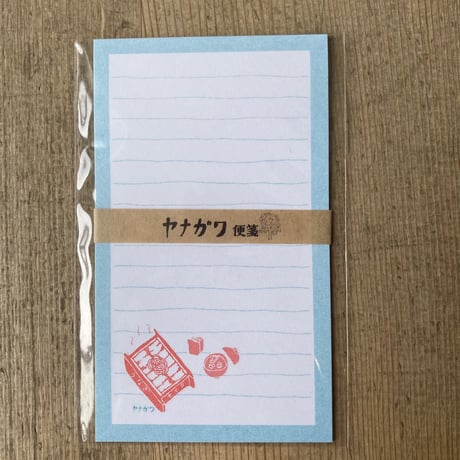 ヤナガワ 便箋
ヤナガワ